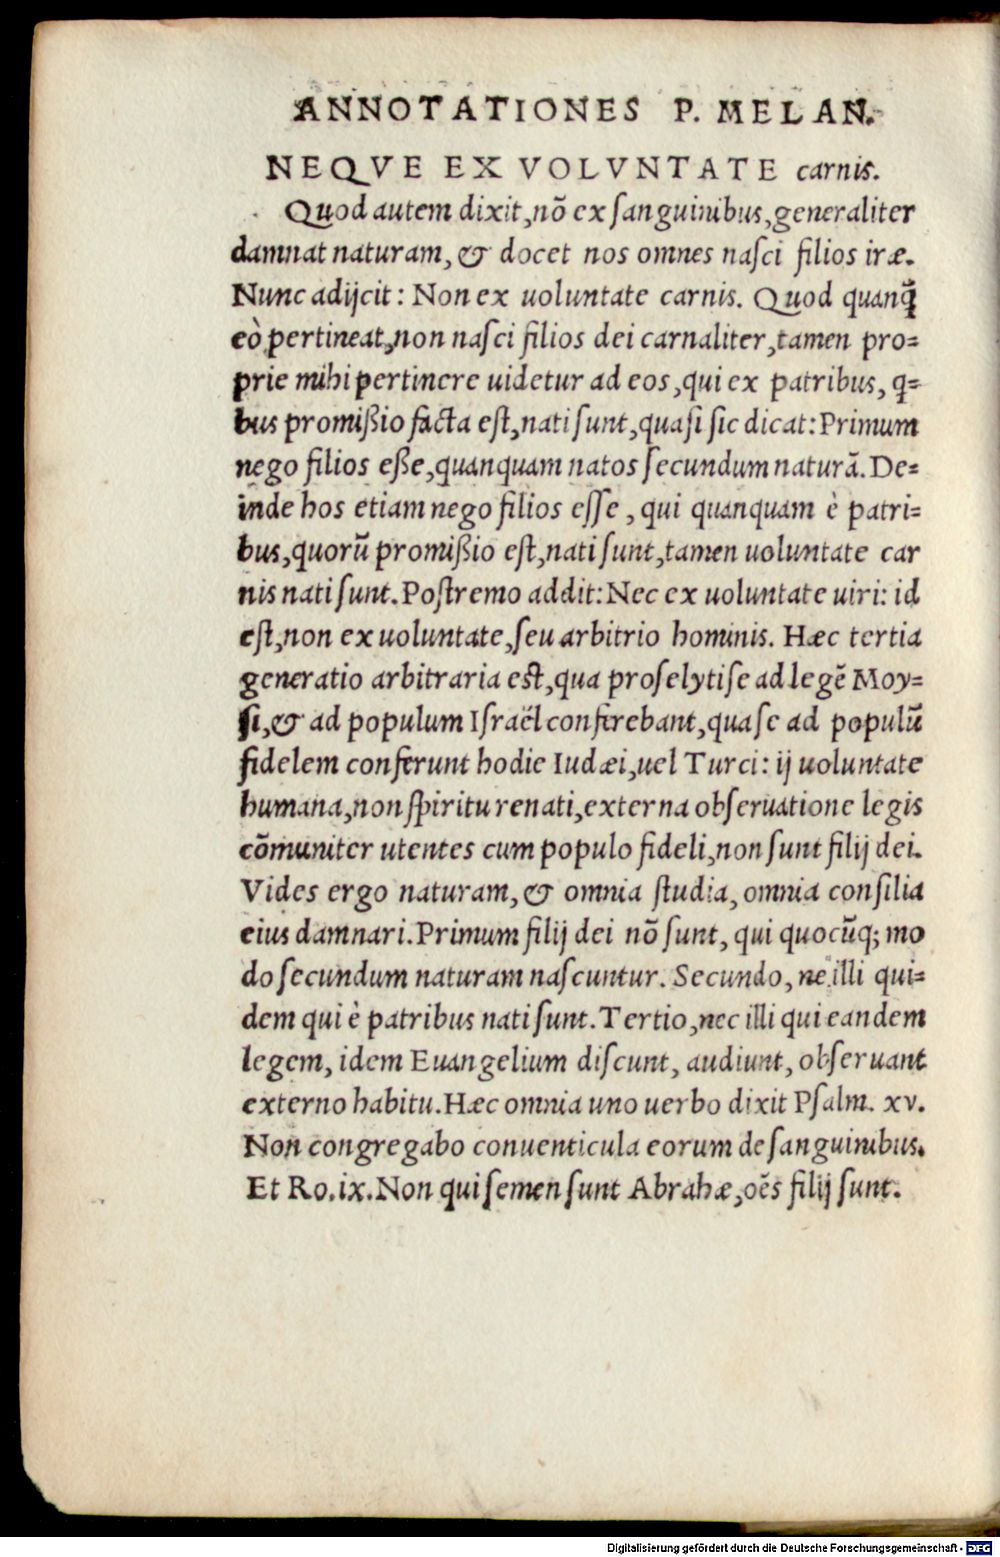 ANNOTATIONES P. MELAN.
NEQVE EX VOLVNTATE carnis.
Quod autem dixit, nō ex ſanguinibus, generaliter
damnat naturam, & docet nos omnes naſci filios iræ.
Nunc adijcit: Non ex uoluntate carnis. Quod quanq̃
eò pertineat, non naſci filios dei carnaliter, tamen pro=
prie mihi pertinere uidetur ad eos, qui ex patribus, q=
bus promiſſio facta eſt, nati ſunt, quaſi ſic dicat: Primum
nego filios eſſe, quanquam natos ſecundum naturā. De=
inde hos etiam nego filios eſſe, qui quanquam è patri=
bus, quorū promiſſio eſt, nati ſunt, tamen uoluntate car
nis nati ſunt. Poſtremo addit: Nec ex uoluntate uiri: id
eſt, non ex uoluntate, ſeu arbitrio hominis. Hæc tertia
generatio arbitraria eſt, qua proſelyti ſe ad legē Moy=
ſi, & ad populum Iſraël conferebant, qua ſe ad populū
fidelem conferunt hodie Iudæi, uel Turci: ij uoluntate
humana, non ſpiritu renati, externa obſeruatione legis
cōmuniter utentes cum populo fideli, non ſunt filij dei.
Vides ergo naturam, & omnia ſtudia, omnia conſilia
eius damnari. Primum filij dei nō ſunt, qui quocūq; mo
do ſecundum naturam naſcuntur. Secundo, ne illi qui=
dem qui è patribus nati ſunt. Tertio, nec illi qui eandem
legem, idem Euangelium diſcunt, audiunt, obſeruant
externo habitu. Hæc omnia uno uerbo dixit Pſalm. xv.
Non congregabo conuenticula eorum de ſanguinibus.
Et Ro. ix. Non qui ſemen ſunt Abrahæ, oēs filij ſunt.
Digitalisierung gefördert durch die Deutsche Forschungsgemeinschaft - DFG